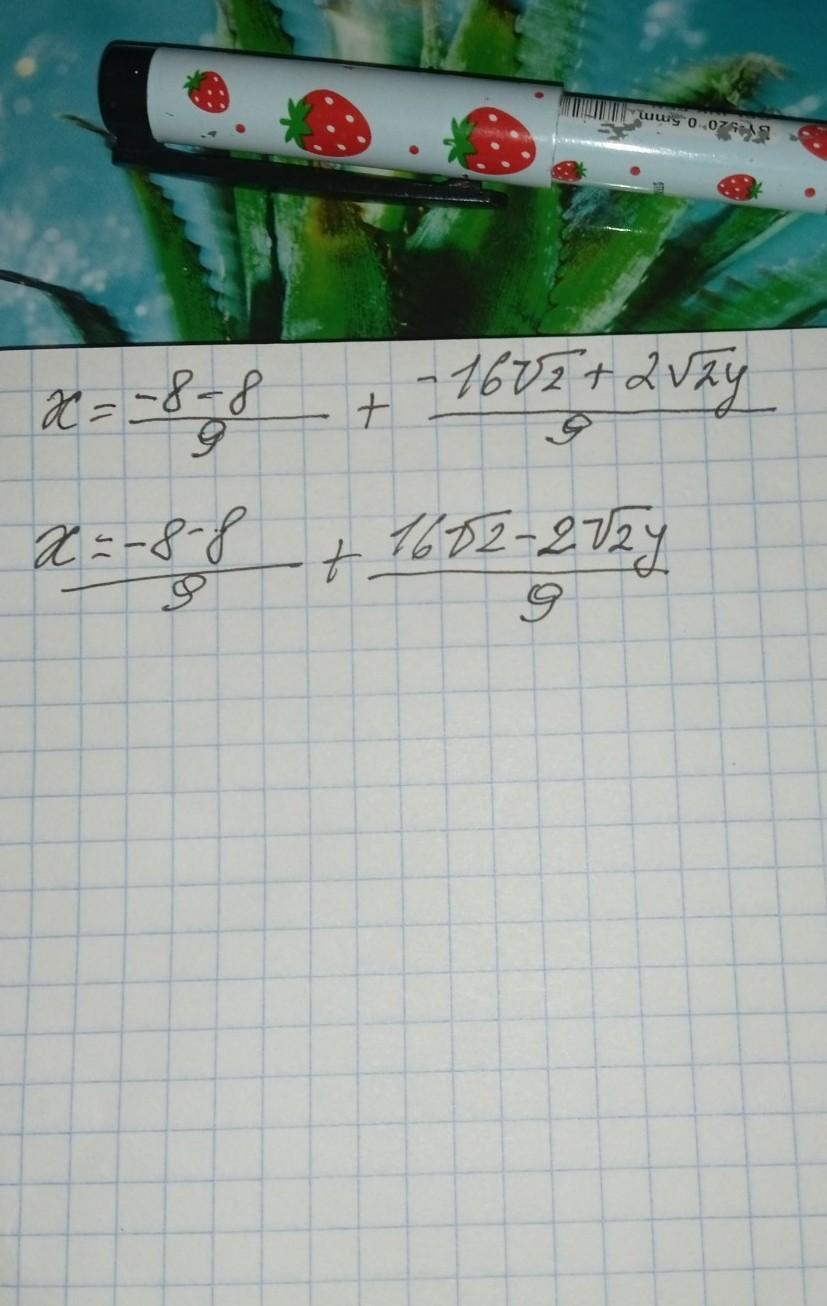 BY-520 0.5mm
x = -8-8/9 + -16√2 + 2√2y/9
x = -8-8/9 + 16√2 - 2√2y/9